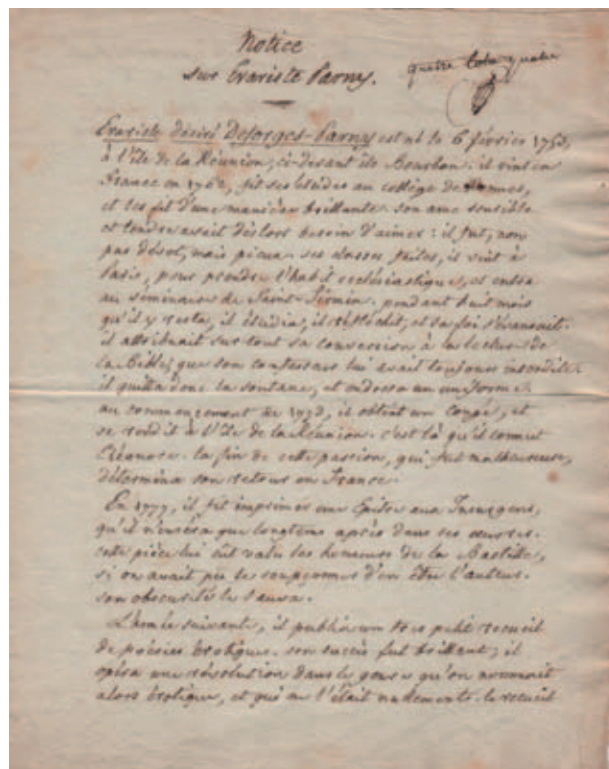 Notice
sur Evariste Parny.
Evariste désiré Desforges-Parny est né le 6 février 1753,
à l'île de la Réunion, ci-devant île Bourbon. il vint en
France en 1762, fit ses études au collège de Rennes,
et les fit d'une manière brillante. son ame sensible
et tendre avait dèslors besoin d'aimer: il fut, non
pas dévot, mais pieux. ses classes faites, il vint à
Paris, pour prendre l'habit ecclésiastique, et entra
au séminaire de Saint-Firmin. pendant huit mois
qu'il y resta, il étudia, il réfléchit, et sa foi s'évanouit.
il attribuait sur tout sa conversion à la lecture de
la Bible, que son confesseur lui avait toujours interdite.
il quitta donc la soutane, et endossa un uniforme.
au commencement de 1773, il obtint un congé, et
se rendit à l'île de la Réunion. c'est là qu'il connut
Eléonore. la fin de cette passion, qui fut malheureuse,
détermina son retour en France.
En 1777, il fit imprimer une Epitre aux Insurgens,
qu'il n'inséra que longtems après dans ses œuvres.
cette pièce lui eût valu les honneurs de la Bastille,
si on avait pu le soupçonner d'en être l'auteur.
son obscurité le sauva.
L'année suivante, il publia un très petit recueil
de poésies érotiques. son succès fut brillant; il
opéra une révolution dans le genre qu'on nommait
alors érotique, et qui ne l'était nullement. le recueil